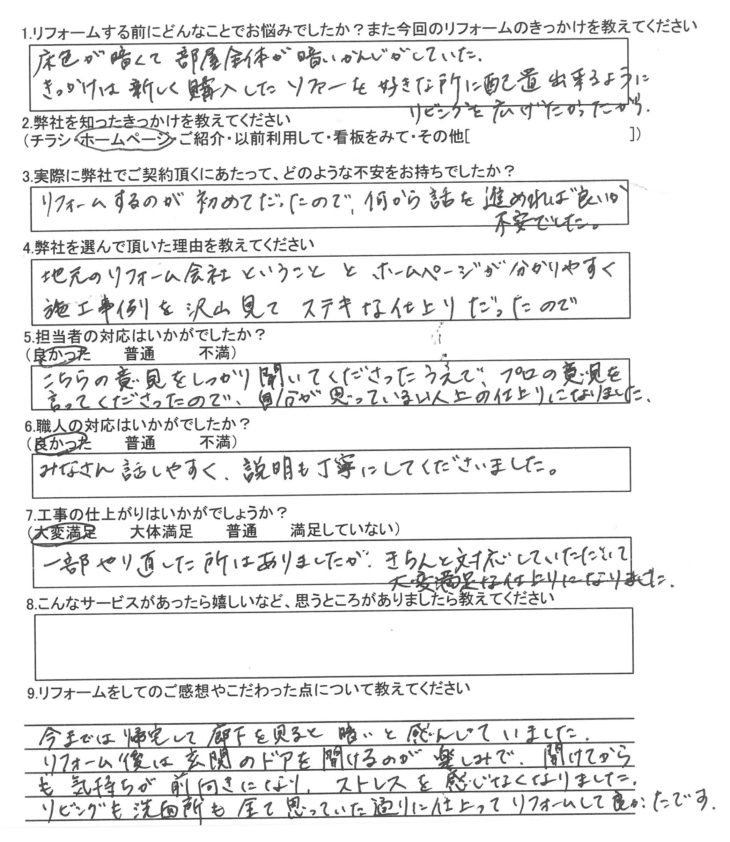 1.リフォームする前にどんなことでお悩みでしたか?また今回のリフォームのきっかけを教えてください
床色が暗くて部屋全体が暗いかんじがしていた.
きっかけは新しく購入したソファーを好きな所に配置出来るように
リビングを広げたかったから.
2.弊社を知ったきっかけを教えてください
(チラシ・ホームページ・ご紹介・以前利用して・看板をみて・その他[ ])
3.実際に弊社でご契約頂くにあたって、どのような不安をお持ちでしたか?
リフォームするのが初めてだったので、何から話を進めれば良いか
不安でした。
4.弊社を選んで頂いた理由を教えてください
地元のリフォーム会社ということとホームページが分かりやすく
施工事例を沢山見てステキな仕上りだったので
5.担当者の対応はいかがでしたか?
(良かった 普通 不満)
こちらの意見をしっかり聞いてくださったうえで、プロの意見を
言ってくださったので、自分が思っている以上の仕上りになりました.
6.職人の対応はいかがでしたか?
(良かった 普通 不満)
みなさん話しやすく、説明も丁寧にしてくださいました。
7.工事の仕上がりはいかがでしょうか?
(大変満足 大体満足 普通 満足していない)
一部やり直した所はありましたが、きちんと対応していただいて
大変満足な仕上りになりました.
8.こんなサービスがあったら嬉しいなど、思うところがありましたら教えてください
9.リフォームをしてのご感想やこだわった点について教えてください
今までは帰宅して廊下を見ると暗いと感んじていました.
リフォーム後は玄関のドアを開けるのが楽しみで、開けてから
も気持ちが前向きになり、ストレスを感じなくなりました.
リビングも洗面所も全て思っていた通りに仕上ってリフォームして良かったです.